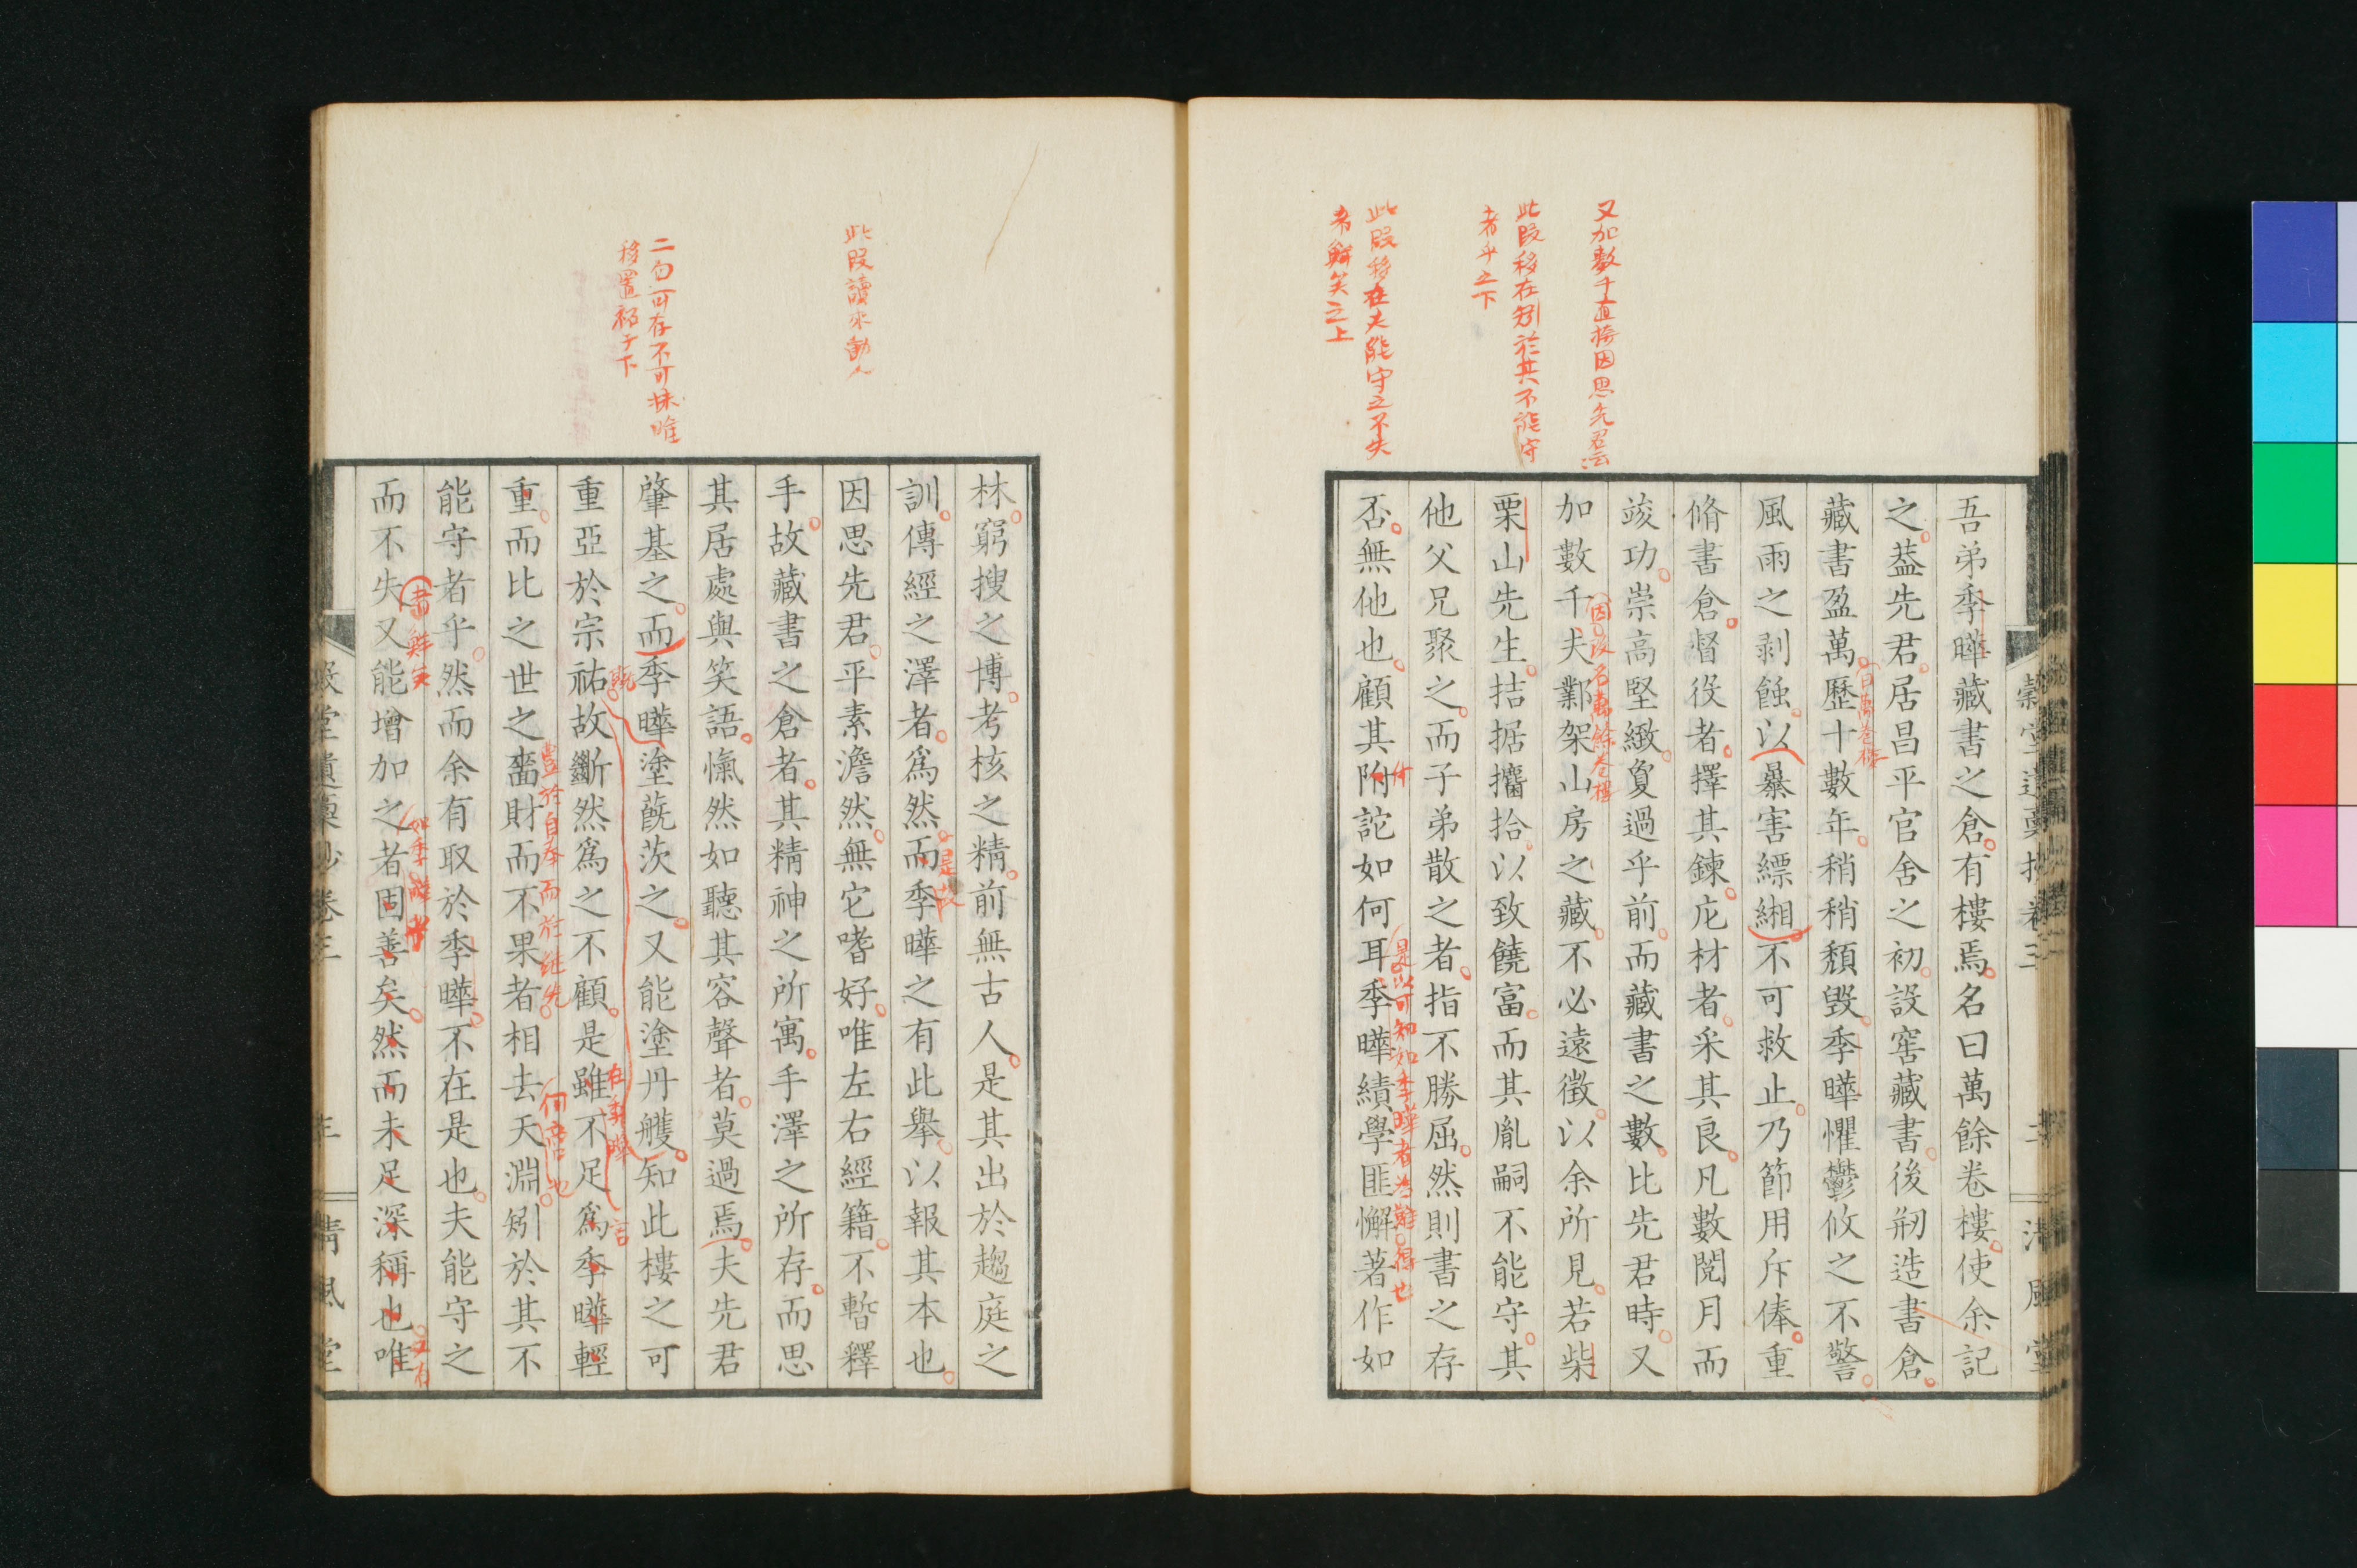 又加數千直接因思先君云
此段移在矧於其不能守
者乎之下
此段移在夫能守之不失
者鮮矣之上
吾弟季曄藏書之倉有樓焉名曰萬餘卷樓使余記
之葢先君居昌平官舍之初設窖藏書後剏造書倉
藏書盈萬歷十數年稍稍頽毀季曄懼鬱攸之不警
風雨之剥蝕以暴害縹緗不可救止乃節用斥俸重
脩書倉督役者擇其鍊庀材者采其良凡數閲月而
竣功崇高堅緻敻過乎前而藏書之數比先君時又
加數千夫鄴架山房之藏不必遠徵以余所見若柴
栗山先生拮据攟拾以致饒富而其胤嗣不能守其
他父兄聚之而子弟散之者指不勝屈然則書之存
否無他也顧其附託如何耳季曄績學匪懈著作如
此段讀來動人
二句可存不可抹唯
移置
林窮搜之博考核之精前無古人是其出於趨庭之
訓傳經之澤者爲然而季曄之有此舉以報其本也
因思先君平素澹然無它嗜好唯左右經籍不暫釋
手故藏書之倉者其精神之所寓手澤之所存而思
其居處與笑語愾然如聽其容聲者莫過焉夫先君
肇基之而季曄塗蔇茨之又能塗丹雘知此樓之可
重亞於宗祏故斷然爲之不顧是雖不足爲季曄輕
重而比之世之嗇財而不果者相去天淵矧於其不
能守者乎然而余有取於季曄不在是也夫能守之
而不失又能增加之者固善矣然而未足深稱也唯
清風堂